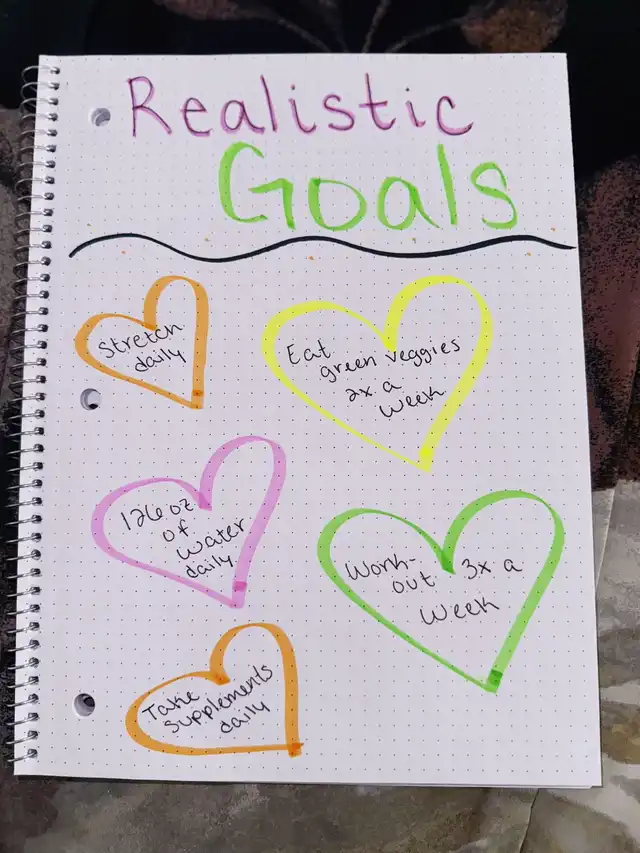 Realistic
Goals
Stretch
daily
Eat
green veggies
2x a
week
126 oz
of
water
daily
Work-
out 3x a
week
Take
supplements
daily